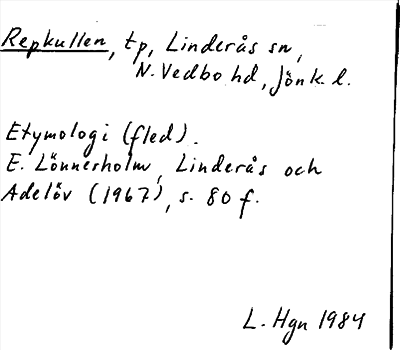 Repkullen, tp, Linderås sn,
N. Vedbo hd, Jönk. l.
Etymologi (fled).
E. Lönnerholm, Linderås och
Adelöv (1967), s. 80 f.
L. Hgn 1984